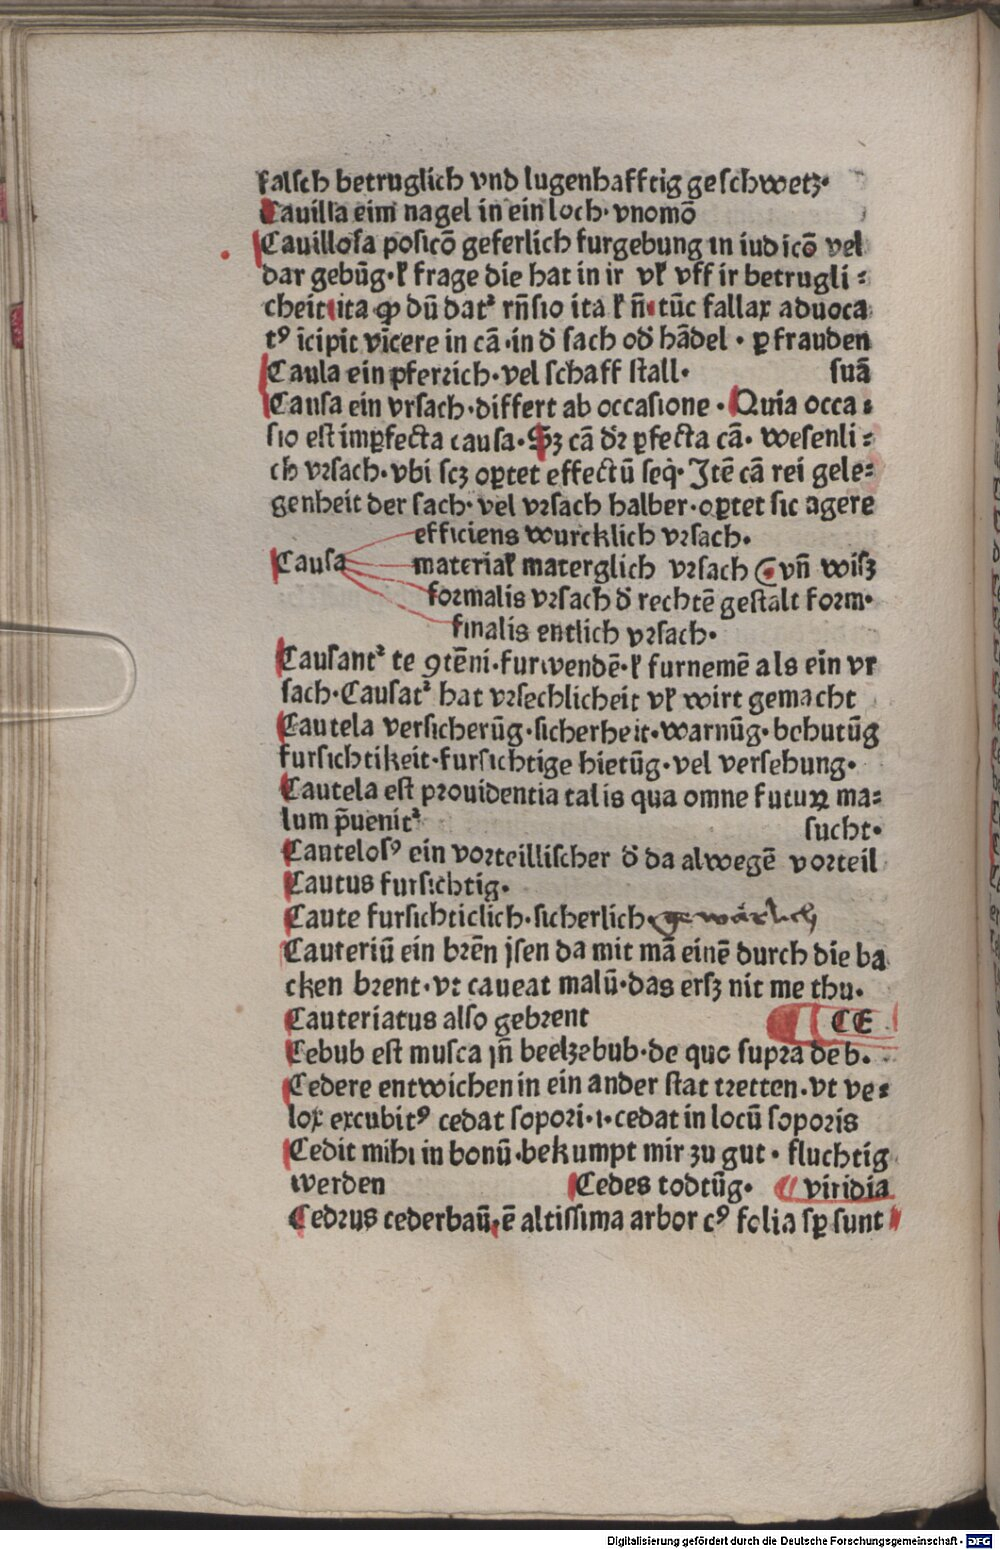 falsch betruglich vnd lugenhafftig geschwetz·
Cauilla eim nagel in ein loch· vnomō
Cauillosa posicō geferlich furgebung in iudicō vel
dar gebūg·ꝉ frage die hat in ir vꝉ vff ir betrugli⸗
cheit ita ꝙ dū datᷣ rn̄sio ita ꝉ n̄ tūc fallax aduoca
tꝰ īcipit vīcere in cā·in d̄ sach od̄ hādel · ꝑ frauden
Caula ein pferrich·vel schaff stall· suā
Causa ein vrsach·differt ab occasione · Quia occa⸗
sio est imꝑfecta causa· Sꝫ cā dꝛ̄ ꝑfecta cā· wesenli⸗
ch vꝛsach·vbi scꝫ oꝑtet effectū seq̇· Itē cā rei gele⸗
genheit der sach· vel vꝛsach halber·oꝑtet sic agere
efficiens wurcklich vꝛsach·
Causa materiaꝉ materglich vꝛsach vn̄ wisz
formalis vꝛsach d̄ rechtē gestalt foꝛm·
finalis entlich vꝛsach·
Causantᷣ te ꝯtēni·furwendē·ꝉ furnemē als ein vr
sach·Causatᷣ hat vꝛsechlicheit vꝉ wirt gemacht
Cautela versicherūg·sicherheit·warnūg·behutūg
fursichtikeit·fursichtige hietūg·vel versehung·
Cautela est pꝛouidentia talis qua omne futuꝝ ma⸗
lum p̄uenitᷣ sucht·
Cautelosꝰ ein voꝛteillischer d̄ da alwegē voꝛteil
Cautus fursichtig·
Caute fursichticlich·sicherlich· gewärlich
Cauteriū ein bꝛēn jsen da mit mā einē durch die ba
cken bꝛent·vt caueat malū·das ersz nit me thu·
Cauteriatus also gebꝛent CE
Cebub est musca jn̄ beelzebub·de quo supꝛa de b·
Cedere entwichen in ein ander stat tꝛetten·vt ve⸗
lox excubitꝰ cedat sopoꝛi·i·cedat in locū sopoꝛis
Cedit mihi in bonū·bekumpt mir zu gut · fluchtig
werden Cedes todtūg· viridia
Cedꝛus cederbaū·ē altissima arbor cꝰ folia sꝑ sunt
Digitalisierung gefördert durch die Deutsche Forschungsgemeinschaft - DFG